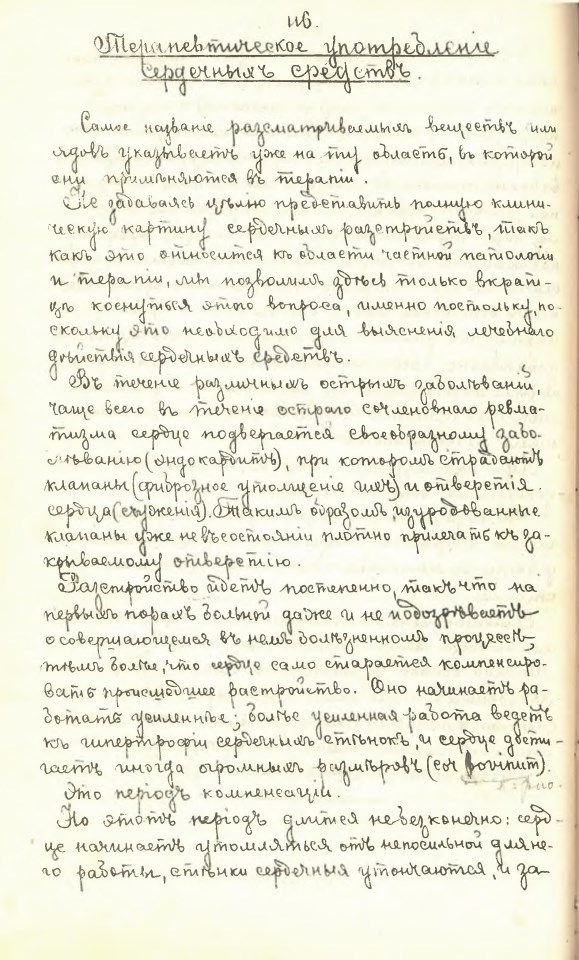 116.
Терапевтическое употребленіе
сердечныхъ средствъ.
Самое названіе разсматриваемыхъ веществъ или
ядовъ указываетъ уже на ту область, въ которой
они примѣняются въ терапіи.
Не задаваясь цѣлію представить полную клини-
ческую картину сердечныхъ разстройствъ, такъ
какъ это относится къ области частной патологіи
и терапіи, мы позволимъ здѣсь только вкрат-
цѣ коснуться этого вопроса, именно постольку, по-
скольку это необходимо для выясненія лечебнаго
дѣйствія сердечныхъ средствъ.
Въ теченіе различныхъ острыхъ заболѣваній,
чаще всего въ теченіе остраго сочленовнаго ревма-
тизма сердце подвергается своеобразному забо-
лѣванію (эндокардитъ), при которомъ страдаютъ
клапаны (фиброзное утолщеніе ихъ) и отверстія
сердца (съуженія). Такимъ образомъ, изуродованные
клапаны уже не въ состояніи плотно прилегать къ за-
крываемому отверстію.
Разстройство идетъ постепенно, такъ что на
первыхъ порахъ больной даже и не подозрѣваетъ
о совершающемся въ немъ болѣзненномъ процессѣ,
тѣмъ болѣе, что сердце само старается компенсиро-
вать происшедшее растройство. Оно начинаетъ ра-
ботать усиленнѣе; болѣе усиленная работа ведетъ
къ гипертрофіи сердечныхъ стѣнокъ, и сердце дости-
гаетъ иногда огромныхъ размѣровъ (cor bovinum).
Это періодъ компенсаціи.
Но этотъ періодъ длится не безконечно: серд-
це начинаетъ утомляться отъ непосильной для не-
го работы, стѣнки сердечныя утончаются, и за